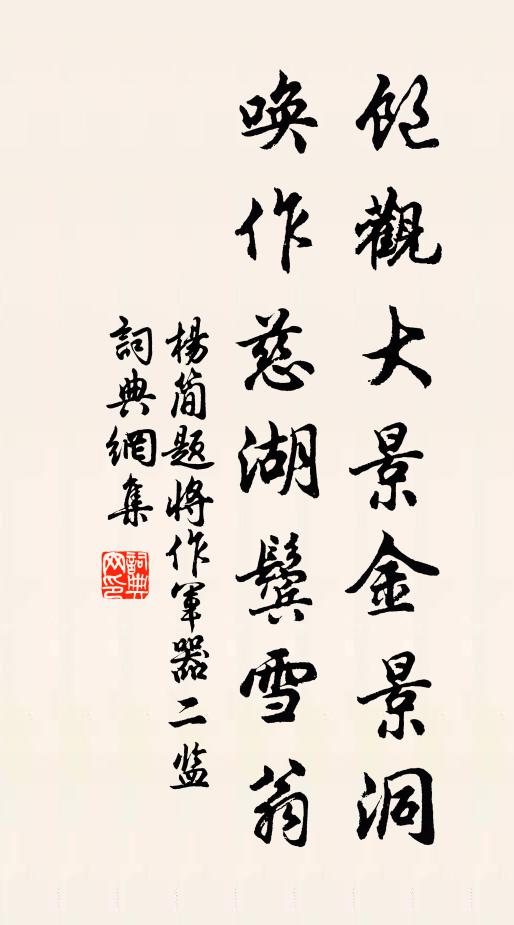 飽觀大景金景洞
喚作慈湖鬢雪翁
楊簡題将作軍器二监
詞典網集
詞典網印